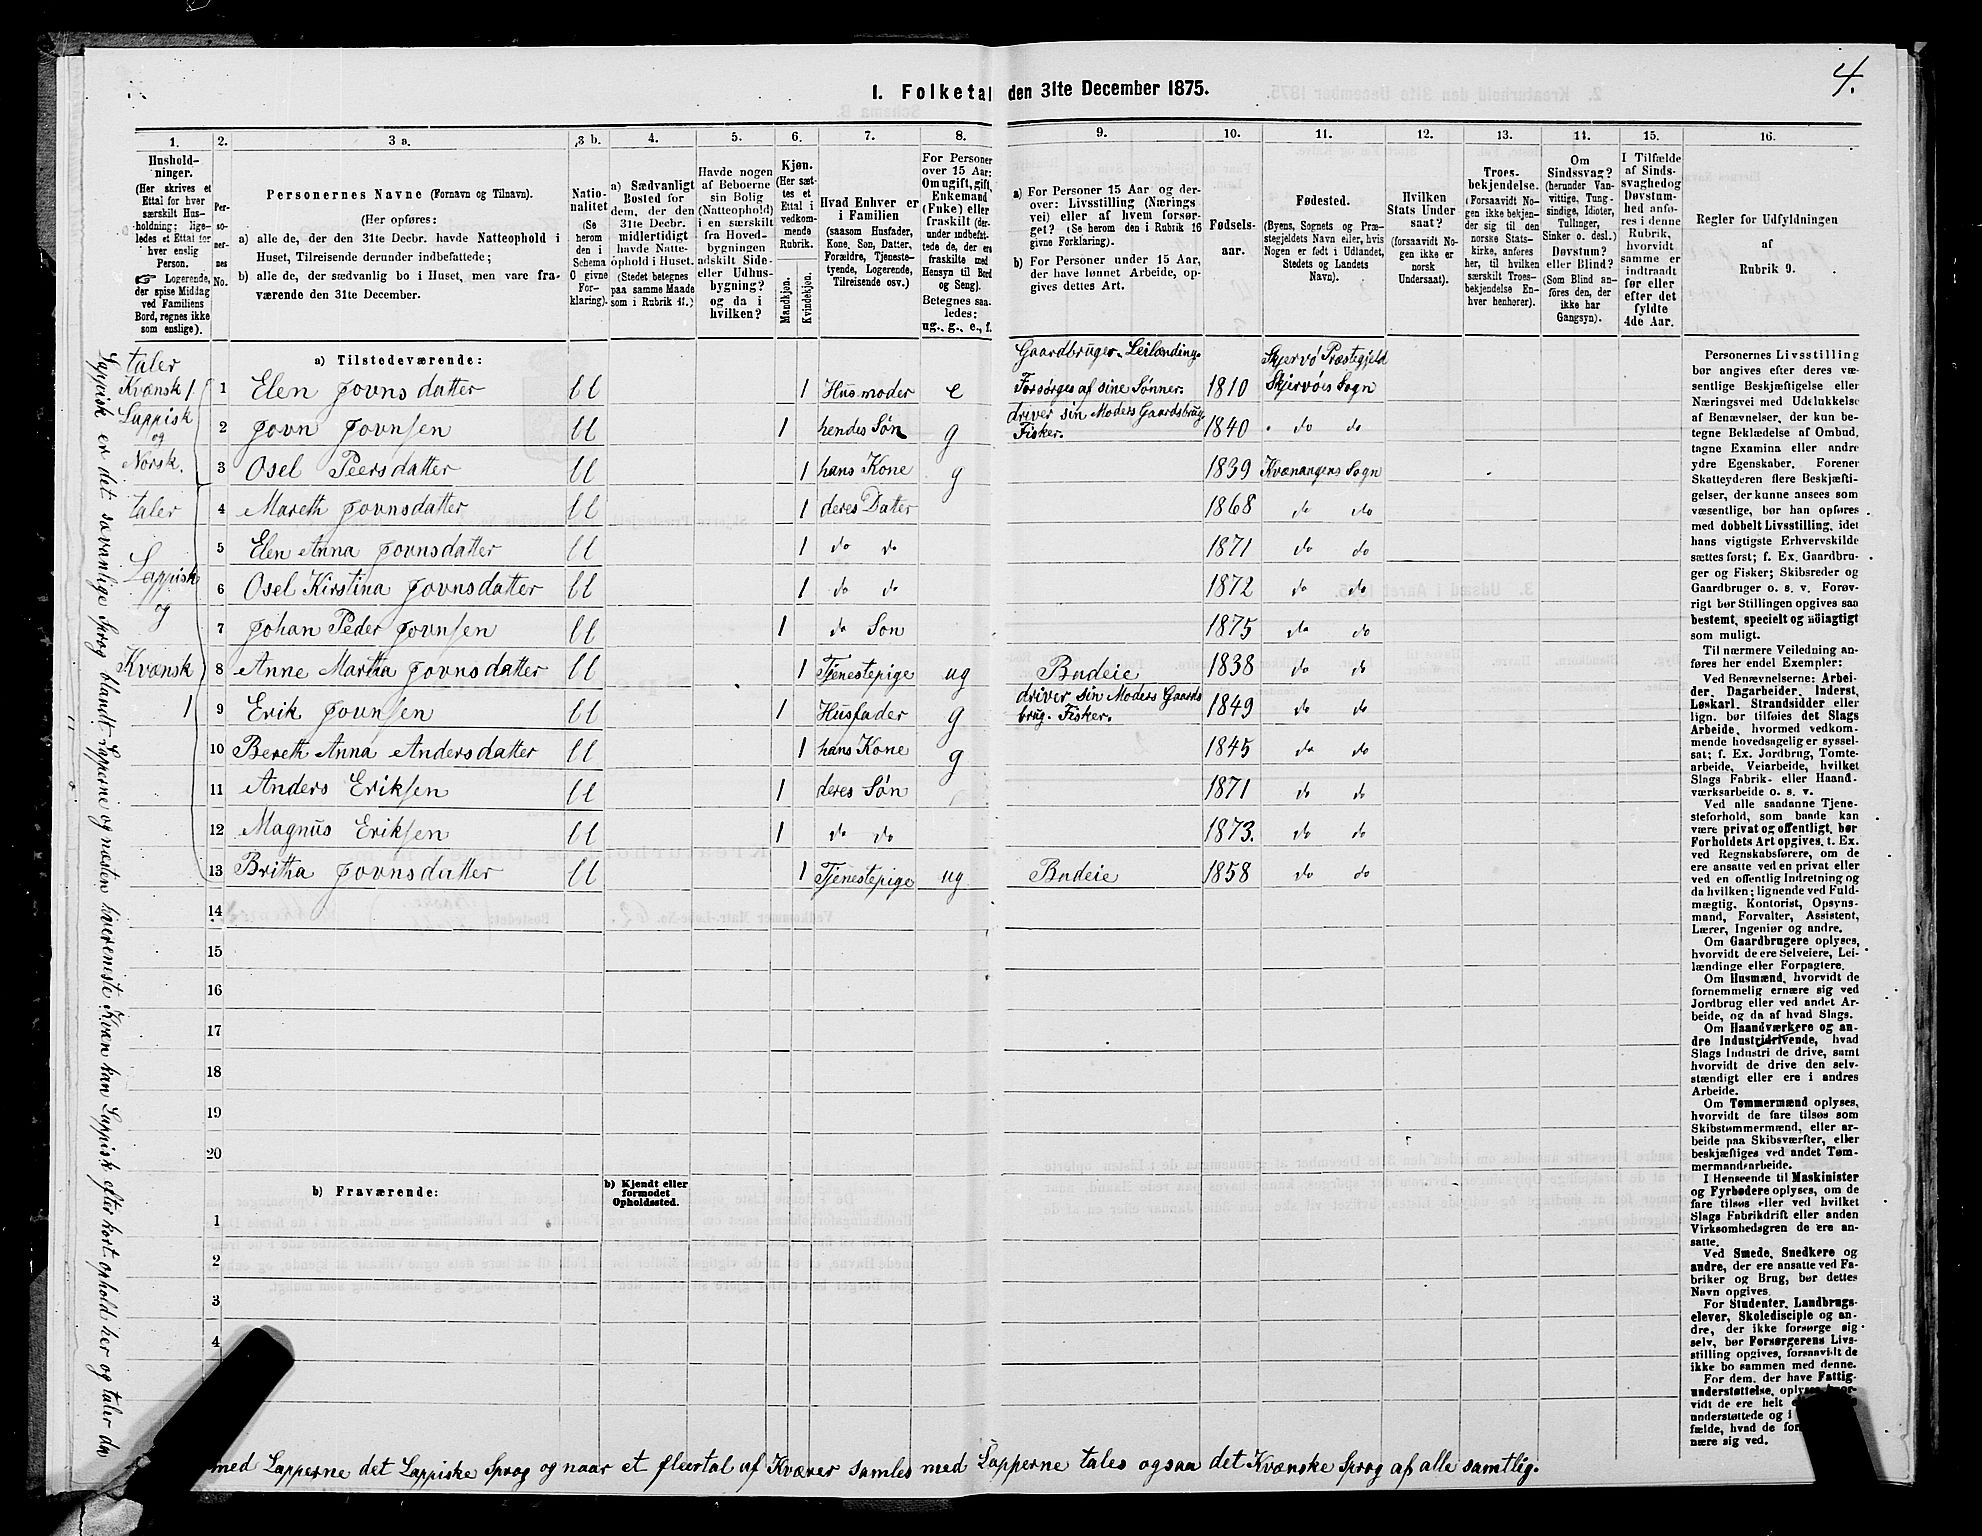 4.
I. Folketal den 31te December 1875.
1.
Hushold-
ninger.
(Her skrives et
Ettal for hver
særskilt Hus-
holdning; lige-
ledes et Ettal for
hver enslig
Person.
☞ Logerende,
der spise Middag
ved Familiens
Bord, regnes ikke
som enslige).
2.
Per-
so-
ner-
nes
No.
3 a.
Personernes Navne (Fornavn og Tilnavn).
(Her opføres:
a) alle de, der den 31te Decbr. havde Natteophold i
Huset, Tilreisende derunder indbefattede;
b) alle de, der sædvanlig bo i Huset, men vare fra-
værende den 31te December.
3 b.
Natio-
nalitet
(Se
herom
den i
Schema
C givne
For-
klaring).
4.
a) Sædvanligt
Bosted for
dem, der den
31te Decbr.
midlertidigt
havde Natte-
ophold i Huset.
(Stedet betegnes
paa samme Maade
som i Rubrik 11.)
5.
Havde nogen
af Beboerne
sin Bolig
(Natteophold)
i en særskilt
fra Hoved-
bygningen
adskilt Side-
eller Udhus-
bygning?
og da i
hvilken?
6.
Kjøn.
(Her sæt-
tes et
Ettal i
vedkom-
mende
Rubrik.
Mandkjøn.
Kvindekjøn.
7.
Hvad Enhver er
i Familien
(saasom Husfader,
Kone, Søn, Datter,
Forældre, Tjeneste-
tyende, Logerende,
Tilreisende osv.)
8.
For Personer
over 15 Aar:
Om ugift, gift,
Enkemand
(Enke) eller
fraskilt (der-
under indbefat-
tede de, der ere
fraskilte med
Hensyn til Bord
og Seng).
Betegnes saa-
ledes:
ug., g., e., f.
9.
a) For Personer 15 Aar og der-
over: Livsstilling (Nærings-
vei) eller af hvem forsør-
get? (Se herom den i Rubrik 16
givne Forklaring).
b) For Personer under 15 Aar,
der have lønnet Arbeide, op-
gives dettes Art.
10.
Fødsels-
aar.
11.
Fødested.
(Byens, Sognets og Præ-
stegjeldets Navn eller, hvis
Nogen er født i Udlandet,
Stedets og Landets
Navn).
12.
Hvilken
Stats Under
saat?
(forsaavidt No-
gen ikke er
norsk
Undersaat).
13.
Troes-
bekjendelse.
(Forsaavidt No-
gen ikke bekjen-
der sig til den
norske Stats-
kirke, anføres
her, til hvilken
særskilt Troes-
bekjendelse En-
hver henhører).
14.
Om
Sindssvag?
(herunder Van-
vittige, Tung-
sindige, Idioter,
Tullinger,
Sinker o. desl.)
Døvstum?
eller Blind?
(Som Blind an-
føres den, der
ikke har
Gangsyn).
15.
I Tilfælde
af Sinds-
svaghed og
Døvstum-
hed anfø-
res i denne
Rubrik,
hvorvidt
samme er
indtraadt
før eller
efter det
fyldte
4de Aar.
16.
Regler for Udfyldningen
af
Rubrik 9.
a) Tilstedeværende:
taler
Kvænsk 1.
Lappisk
og
Norsk.
taler
Lappisk
og
Kvænsk
1
1 Elen Jovnsdatter ll 1 Husmoder e Gaardbruger. Leilænding. Forsørges af sine Sønner. 1810 Skjervø Præstegjeld Skjervøis Sogn
2 Jovn Jovnsen ll 1 hendes Søn g driver sin Moders Gaardsbrug. Fisker. 1840 do do
3 Osel Peersdatter ll 1 hans Kone g 1839 Kvænangens Sogn
4 Mareth Jovnsdatter ll 1 deres Datter 1868 do do
5 Elen Anna Jovnsdatter ll 1 do do 1871 do do
6 Osel Kirstina Jovnsdatter ll 1 do do 1872 do do
7 Johan Peder Jovnsen ll 1 do Søn 1875 do do
8 Anne Martha Jovnsdatter ll 1 Tjenestepige ug Budeie 1838 do do
9 Erik Jovnsen ll 1 Husfader g driver sin Moders Gaards brug. Fisker. 1849 do do
10 Bereth Anna Andersdatter ll 1 hans Kone g 1845 do do
11 Anders Eriksen ll 1 deres Søn 1871 do do
12 Magnus Eriksen ll 1 do do 1873. do do
13 Britha Jovnsdatter ll 1 Tjenestepige ug Budeie 1858 do do
14
15
16
17
18
19
20
b) Fraværende:
b) Kjendt eller
formodet
Opholdssted.
1
2
3
4
Personernes Livsstilling
bør angives efter deres væ-
sentlige Beskjæftigelse eller
Næringsvei med Udelukkelse
af Benævnelser, der kun be-
tegne Beklædelse af Ombud,
tagne Examina eller andre
ydre Egenskaber. Forener
Skatteyderen flere Beskjæfti-
gelser, der kunne ansees som
væsentlige, bør han opføres
med dobbelt Livsstilling, idet
hans vigtigste Erhvervskilde
sættes først; f. Ex. Gaardbru-
ger og Fisker; Skibsreder og
Gaardbruger o. s. v. Forøv-
rigt bør Stillingen opgives saa
bestemt, specielt og nøiagtigt
som muligt.
Til nærmere Veiledning an-
føres her endel Exempler:
Ved Benævnelserne: Arbei-
der, Dagarbeider, Inderst,
Løskarl, Strandsidder eller
lign. bør tilføies det Slags
Arbeide, hvormed vedkom-
mende hovedsagelig er syssel-
sat; f. Ex. Jordbrug, Tomte-
arbeide, Veiarbeide, hvilket
Slags Fabrik- eller Haand-
værksarbeide o. s. v.
Ved alle saadanne Tjene-
steforhold, som baade kan
være privat og offentligt, bør
Forholdets Art opgives, f. Ex.
ved Regnskabsførere, om de
ere ansatte ved en privat eller
ved en offentlig Indretning og
da hvilken; lignende ved Fuld-
mægtig, Kontorist, Opsyns-
mand, Forvalter, Assistent,
Lærer, Ingeniør og andre.
Om Gaardbrugere oplyses,
hvorvidt de ere Selveiere, Lei-
lændinge eller Forpagtere.
Om Husmænd, hvorvidt de
fornemmelig ernære sig ved
Jordbrug eller ved andet Ar-
beide, og da af hvad Slags.
Om Haandværkere og an-
dre Industridrivende, hvad
Slags Industri de drive, samt
hvorvidt de drive den selv-
stændigt eller ere i andres
Arbeide.
Om Tømmermænd oplyses,
hvorvidt de fare tilsøs som
Skibstømmermænd, eller ar-
beide paa Skibsværfter, eller
beskjæftiges ved andet Tøm-
mermandsarbeide.
I Henseende til Maskinister
og Fyrbødere oplyses, om de
fare tilsøs eller ved hvilket
Slags Fabrikdrift eller anden
Virksomhedsgren de ere an-
satte.
Ved Smede, Snedkere og
andre, der ere ansatte ved Fa-
briker og Brug, bør dettes
Navn opgives.
For Studenter, Landbrugs-
elever, Skoledisciple og an-
dre, der ikke forsørge sig
selv, bør Forsørgerens Livs-
stilling opgives, forsaavidt de
ikke bo sammen med denne.
For dem, der have Fattig-
understøttelse, oplyses hvor-
vidt de ere helt
understøttede og i
fælde, hvad de for
nære sig ved.
Lappisk er det sævanlige Sprog blandt Lapperne og næsten hvereneste Kvæn kan Lappisk efter kort ophold her og taler da
med Lapperne det Lappiske Sprog og naar et fleertal af Kvæner samles med Lapperne tales ogsaa det Kvænske Sprog af alle samtlig.